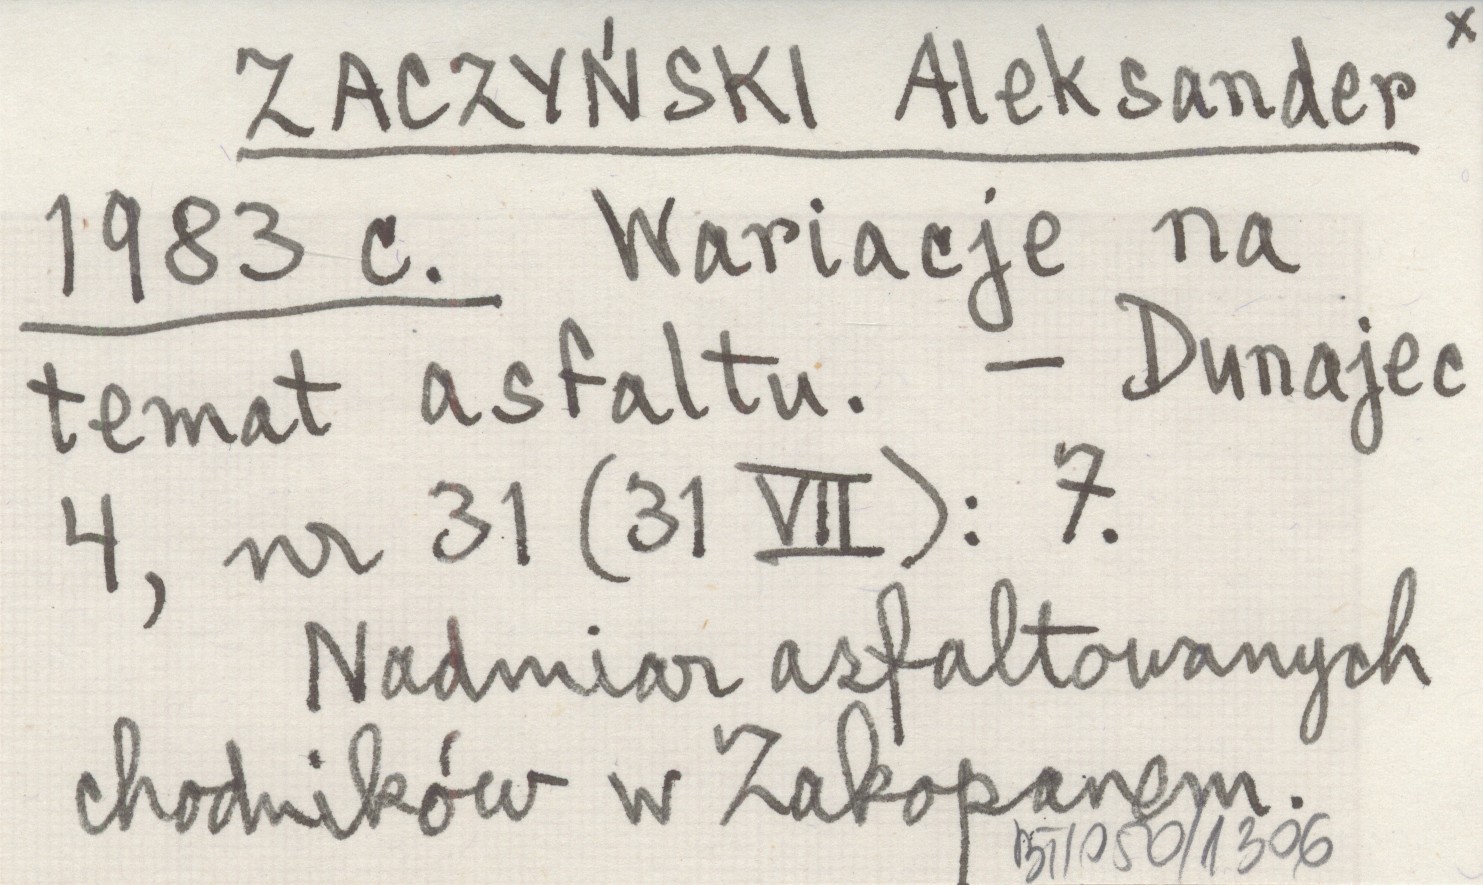 ZACZYŃSKI Aleksander x
1983 c. Wariacje na
temat asfaltu. – Dunajec
4, nr 31 (31 VII): 7.
Nadmiar asfaltowanych
chodników w Zakopanem.
BT/050/1306